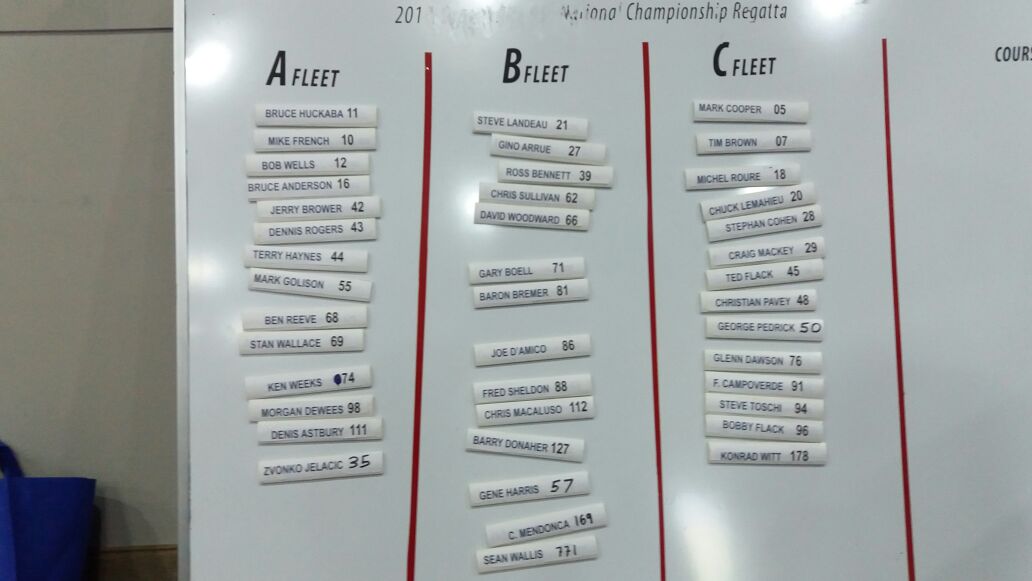 National Championship Regatta
A FLEET
BRUCE HUCKABA 11
MIKE FRENCH 10
BOB WELLS 12
BRUCE ANDERSON 16
JERRY BROWER 42
DENNIS ROGERS 43
TERRY HAYNES 44
MARK GOLISON 55
BEN REEVE 68
STAN WALLACE 69
KEN WEEKS 74
MORGAN DEWEES 98
DENIS ASTBURY 111
ZVONKO JELACIC 35
B FLEET
STEVE LANDEAU 21
GINO ARRUE 27
ROSS BENNETT 39
CHRIS SULLIVAN 62
DAVID WOODWARD 66
GARY BOELL 71
BARON BREMER 81
JOE D'AMICO 86
FRED SHELDON 88
CHRIS MACALUSO 112
BARRY DONAHER 127
GENE HARRIS 57
C. MENDONCA 169
SEAN WALLIS 771
C FLEET
MARK COOPER 05
TIM BROWN 07
MICHEL ROURE 18
CHUCK LEMAHIEU 20
STEPHAN COHEN 28
CRAIG MACKEY 29
TED FLACK 45
CHRISTIAN PAVEY 48
GEORGE PEDRICK 50
GLENN DAWSON 76
F. CAMPOVERDE 91
STEVE TOSCHI 94
BOBBY FLACK 96
KONRAD WITT 178
COURS